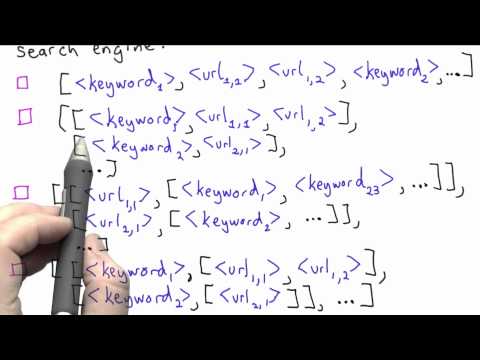 search engine.
[<keyword₁>, <url₁,₂>, <url₁,₂>, <keyword₂>, ...]
[[<keyword₁>, <url₁,₁>, <url₁,₂>],
[<keyword₂>, <url₂,₁>],
...]
[[<url₁,₁>, [<keyword₁>, <keyword₂₃>, ...]],
[<url₂,₁>, [<keyword₂>, ...]],
...]
[[<keyword₁>, [<url₁,₁>, <url₁,₂>]],
[<keyword₂>, [<url₂,₁>]], ...]